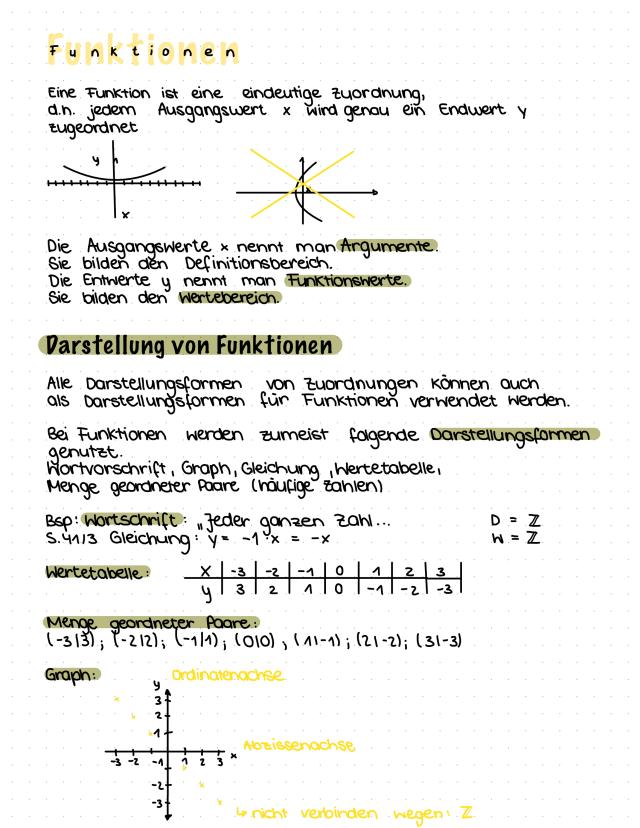 Funktionen
Eine Funktion ist eine eindeutige Zuordnung,
d.h. jedem Ausgangswert x wird genau ein Endwert y
zugeordnet
y
x
Die Ausgangswerte x nennt man Argumente.
Sie bilden den Definitionsbereich.
Die Entwerte y nennt man Funktionswerte.
Sie bilden den Wertebereich.
Darstellung von Funktionen
Alle Darstellungsformen von Zuordnungen können auch
als Darstellungsformen für Funktionen verwendet werden.
Bei Funktionen werden zumeist folgende Darstellungsformen
genutzt.
Wortvorschrift, Graph, Gleichung, Wertetabelle,
Menge geordneter Paare (häufige Zahlen)
Bsp: Wortschrift: „Jeder ganzen Zahl... D = ℤ
S.41/3 Gleichung: y = -1·x = -x W = ℤ
Wertetabelle: x | -3 | -2 | -1 | 0 | 1 | 2 | 3 |
y | 3 | 2 | 1 | 0 | -1 | -2 | -3 |
Menge geordneter Paare:
(-3|3); (-2|2); (-1|1); (0|0), (1|-1); (2|-2); (3|-3)
Graph: Ordinatenachse
y
3
2
1
Abzissenachse
x
-3 -2 -1 1 2 3
-2
-3
↳ nicht verbinden wegen: ℤ